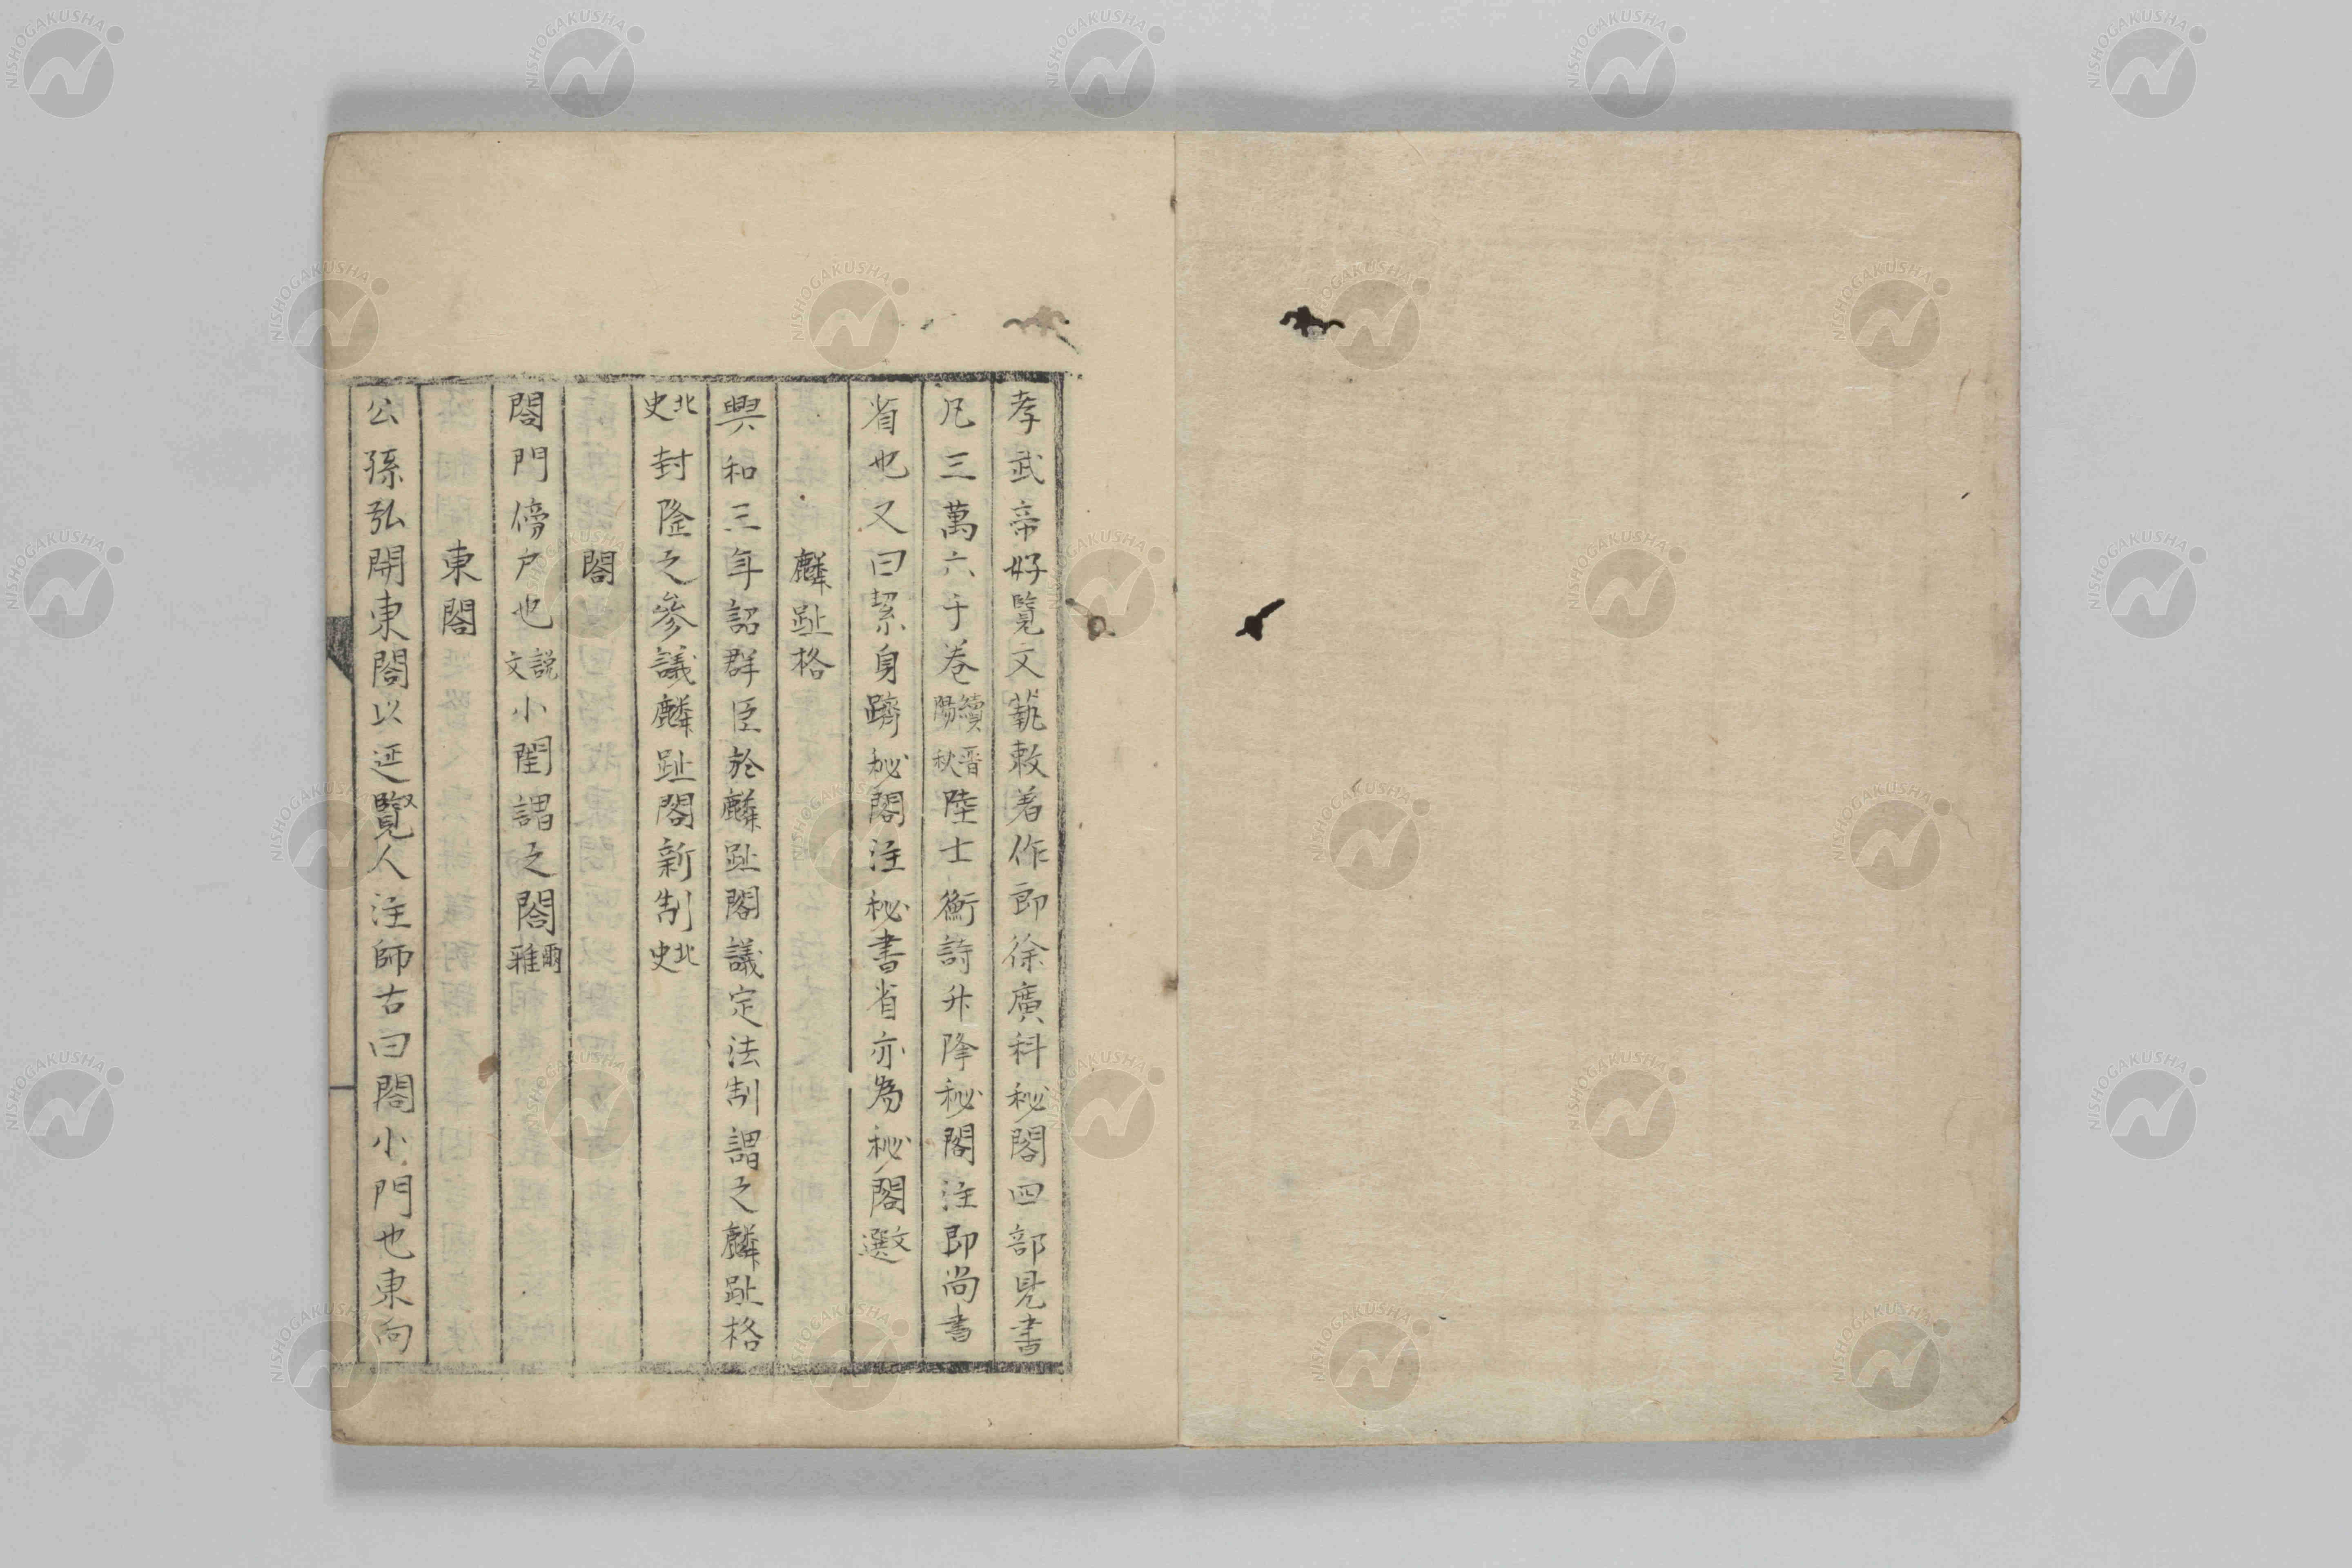 孝武帝好覧文藝敕著作郎徐廣科秘閣四部見書
凡三萬六千巻續晋陽秋陸士衡詩升降秘閣注即尚書
省也又曰絜身躋秘閣注秘書省亦為秘閣文選
麟趾格
興和三年詔群臣於麟趾閣議定法制謂之麟趾格
北史封隆之參議麟趾閣新制北史
閤
閤門傍戸也説文小閨謂之閤爾雅
東閤
公孫弘開東閤以延賢人注師古曰閤小門也東向